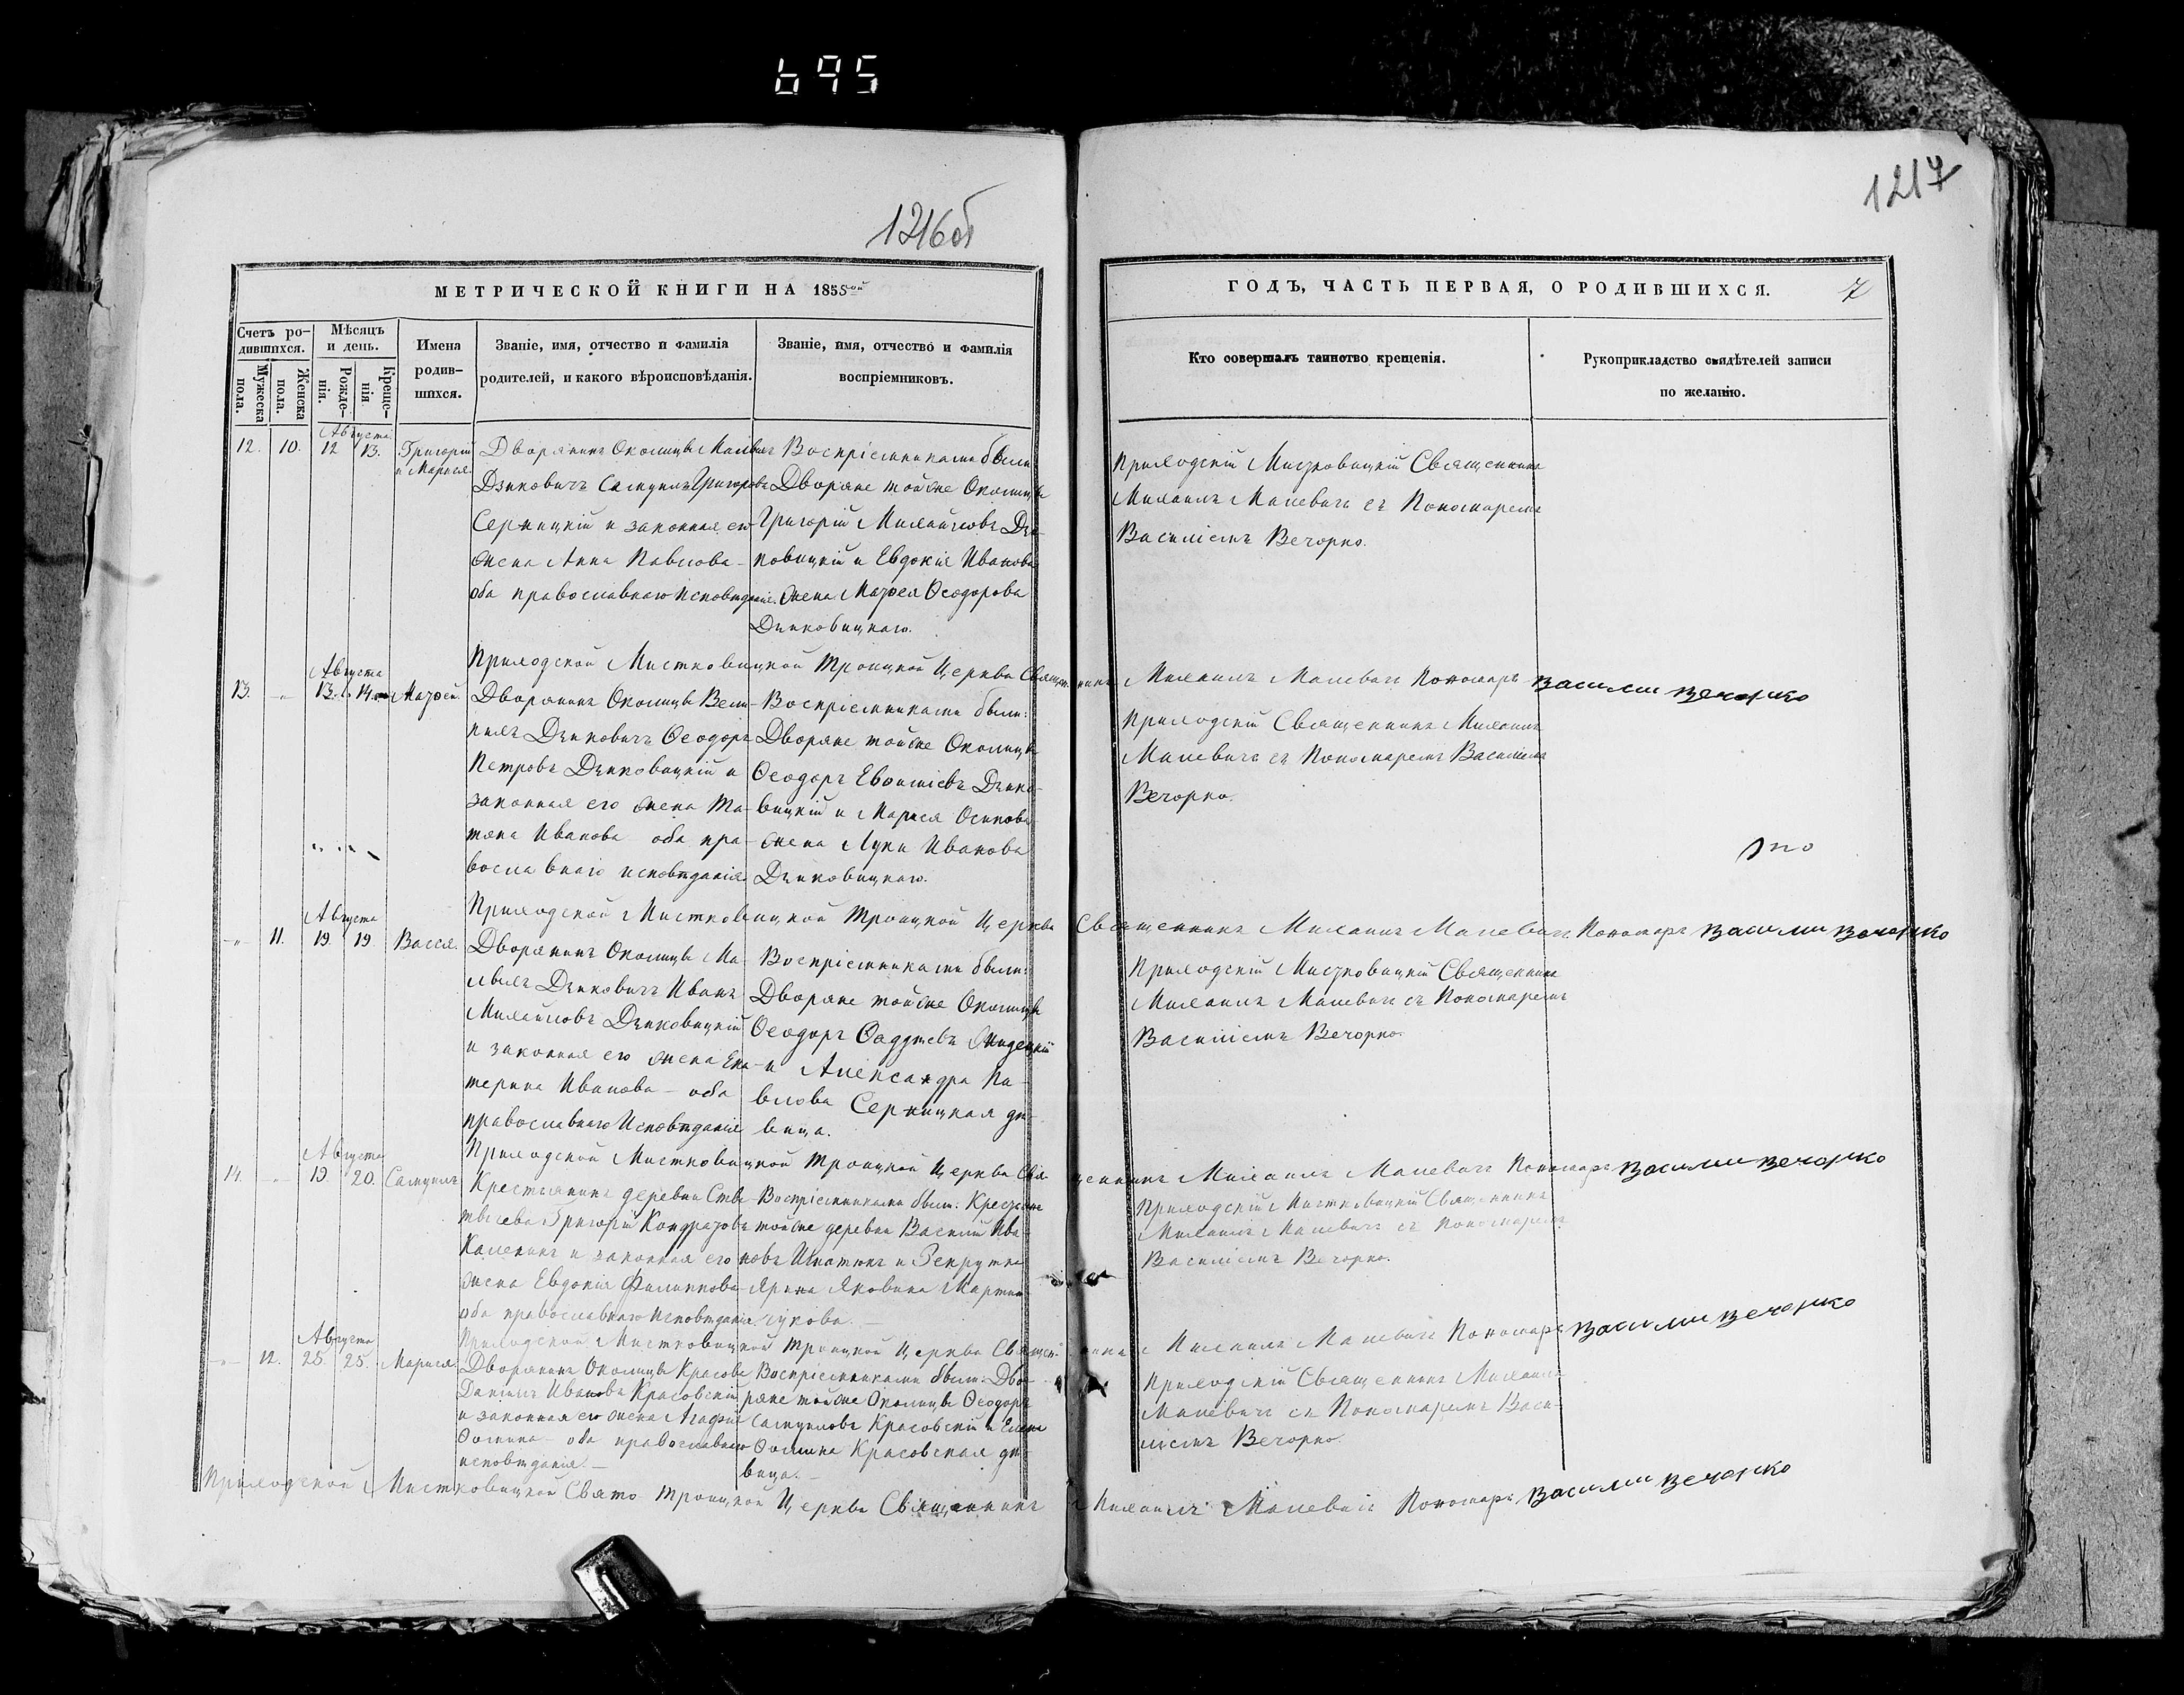 695
1216об
1217
МЕТРИЧЕСКОЙ КНИГИ НА 1855ой
Счетъ ро-
дившихся.
Мужеска
пола.
Женска
пола.
Мѣсяцъ
и день.
Рожде-
нія.
Креще-
нія.
Имена
родив-
шихся.
Званіе, имя, отчество и фамилія
родителей, и какого вѣроисповѣданія.
Званіе, имя, отчество и фамилія
воспріемниковъ.
ГОДЪ, ЧАСТЬ ПЕРВАЯ, О РОДИВШИХСЯ.
7
Кто совершалъ таинство крещенія.
Рукоприкладство свидѣтелей записи
по желанію.
12. 10.
Августа
12 13.
Григорій
и Марися
Дворянинъ Околицы Малыхъ
Дзиковичъ Самуилъ Григоровъ
Серницкій и законная его
жена Анна Павлова –
оба православнаго исповѣданія.
Воспріемниками были
Дворяне той же Околицы
Григорій Михайловъ Дзи-
ковицкій и Евдокія Иванова
жена Матѳея Ѳеодорова
Дзиковицкаго.
Приходскій Мистковицкій Священникъ
Михаилъ Малевичъ съ Пономаремъ
Василіемъ Вечорко.
Приходской Мистковицкой Троицкой Церкви Священникъ Михаилъ Малевичъ Пономарь Василий Вечорко
13. -"-
Августа
13. 14.
Матѳей.
Дворянинъ Околицы Вели-
кихъ Дзиковичъ Ѳеодоръ
Петровъ Дзиковицкій и
законная его жена Та-
тяна Иванова – оба пра-
вославнаго исповѣданія.
Воспріемниками были:
Дворяне той же Околицы
Ѳеодоръ Евѳиміевъ Дзико-
вицкій и Марися Осипова
жена Луки Иванова
Дзиковицкаго.
Приходскій Священникъ Михаилъ
Малевичъ съ Пономаремъ Василіемъ
Вечорко.
Приходской Мистковицкой Троицкой Церкви Священникъ Михаилъ Малевичъ Пономарь Василий Вечорко
-"- 11.
Августа
19. 19
Васся.
Дворянинъ Околицы Ма-
лыхъ Дзиковичъ Иванъ
Михайловъ Дзиковицкій
и законная его жена Ека-
терина Иванова – оба
православнаго Исповѣданія
Воспріемниками были:
Дворяне той же Околицы
Ѳеодоръ Ѳаддѣевъ
и Александра Па-
влова Серницкая дѣ-
вица.
Приходскій Мистковицкій Священникъ
Михаилъ Малевичъ съ Пономаремъ
Василіемъ Вечорко.
Приходской Мистковицкой Троицкой Церкви Священникъ Михаилъ Малевичъ Пономарь Василий Вечорко
14. -"-
Августа
19. 20.
Самуилъ
Крестьянинъ деревни
Григорій Кондратовъ
и законная его
жена Евдокія Филиппова
оба православнаго исповѣданія
Воспріемниками были: Крестьяне
той же деревни Василій Ива-
новъ Игнатюкъ и Рекрутка
Ярина Яковина Мартин-
чукова. –
Приходскій Мистковицкій Священникъ
Михаилъ Малевичъ съ Пономаремъ
Василіемъ Вечорко.
Приходской Мистковицкой Троицкой Церкви Священникъ Михаилъ Малевичъ Пономарь Василий Вечорко
-"- 12.
Августа
25. 25.
Марися.
Дворянинъ Околицы Красове
Даніилъ Ивановъ Красовскій
и законная его жена Агафія
Ѳомина – оба православнаго
исповѣданія. –
Воспріемниками были: Дво-
ряне той же Околицы Ѳеодоръ
Самуиловъ Красовскій и Елена
Ѳомина Красовская дѣ-
вица. –
Приходскій Священникъ Михаилъ
Малевичъ съ Пономаремъ Васи-
ліемъ Вечорко.
Приходской Мистковицкой Свято Троицкой Церкви Священникъ Михаилъ Малевичъ Пономарь Василий Вечорко